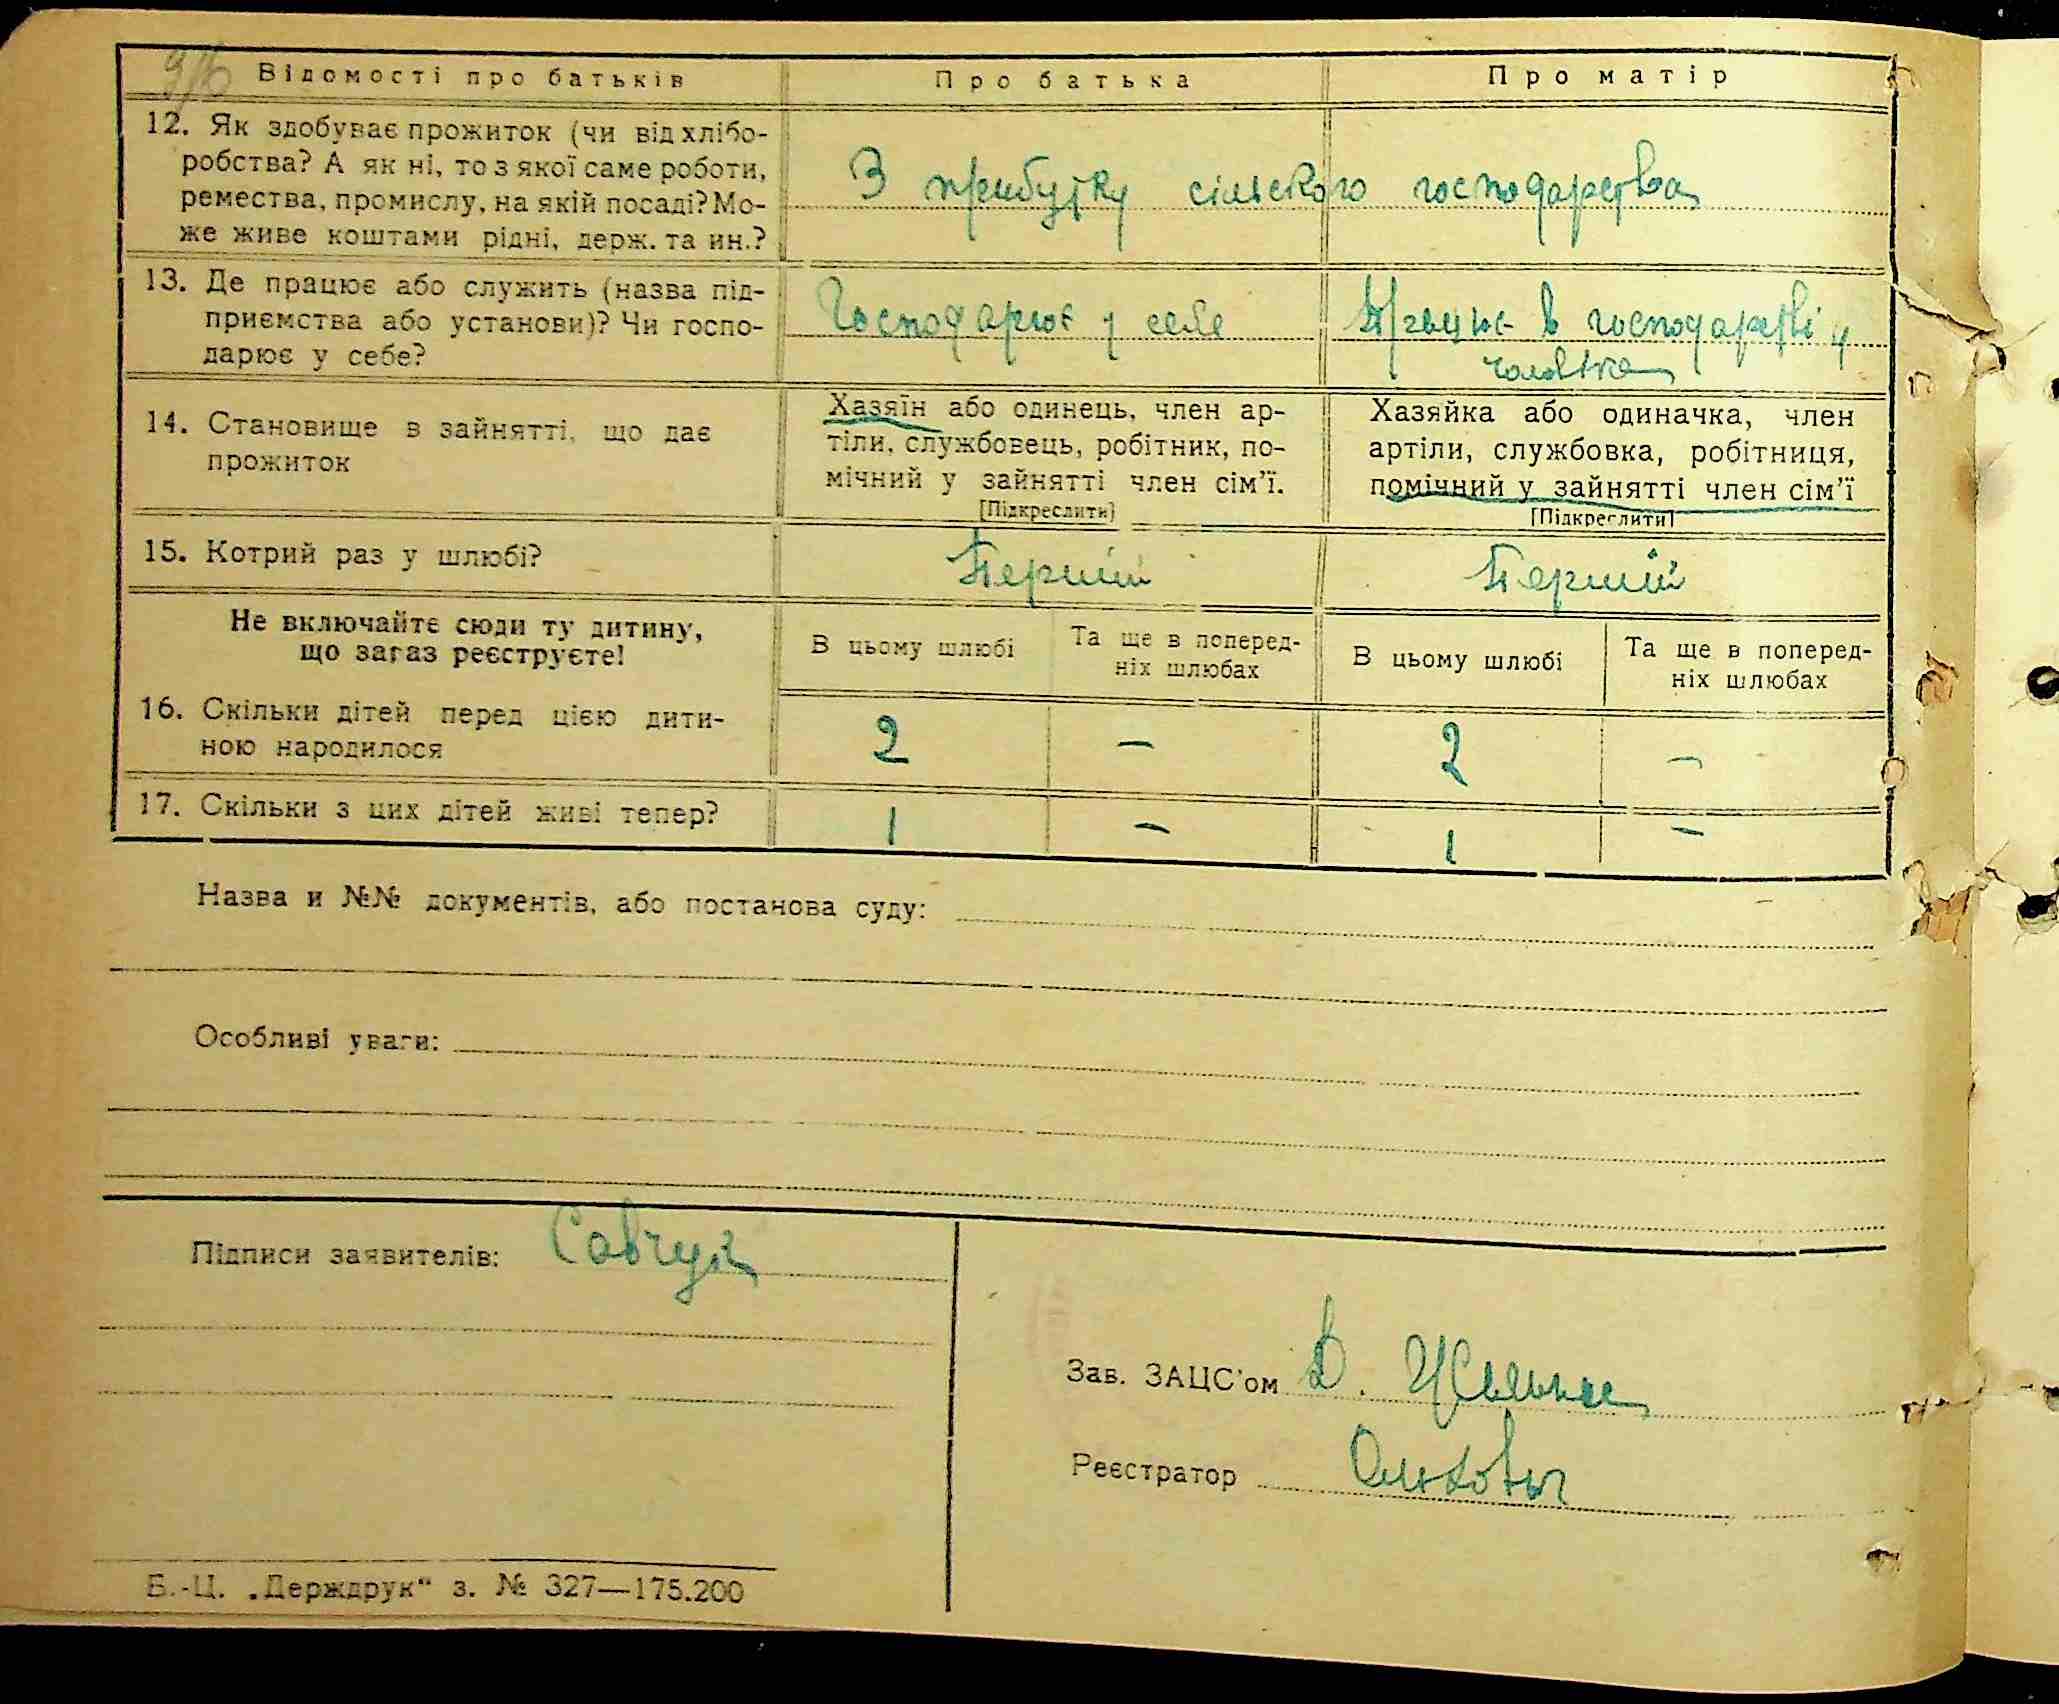 Відомості про батьків
Про батька
Про матір
12. Як здобуває прожиток (чи від хлібо-
робства? А як ні, то з якої саме роботи,
ремества, промислу, на якій посаді? Мо-
же живе коштами рідні, держ. та ин.?
З прибутку сільского господарства
13. Де працює або служить (назва під-
приємства або установи)? Чи госпо-
дарює у себе?
Господарює у себе
Працює в господарстві у
чоловіка
14. Становище в зайнятті, що дає
прожиток
Хазяїн або одинець, член ар-
тіли, службовець, робітник, по-
мічний у зайнятті член сім’ї.
[Підкреслити]
Хазяйка або одиначка, член
артіли, службовка, робітниця,
помічний у зайнятті член сім’ї
[Підкреслити]
15. Котрий раз у шлюбі?
Перший
Перший
Не включайте сюди ту дитину,
що зараз реєструєте!
В цьому шлюбі
Та ще в поперед-
ніх шлюбах
В цьому шлюбі
Та ще в поперед-
ніх шлюбах
16. Скільки дітей перед цією дити-
ною народилося
2 — 2 —
17. Скільки з цих дітей живі тепер?
1 — 1 —
Назва и №№ документів, або постанова суду:
Особливі уваги:
Підписи заявителів: Савчук
Зав. ЗАЦС'ом
Реєстратор
Б.-Ц. „Держдрук“ з. № 327—175.200